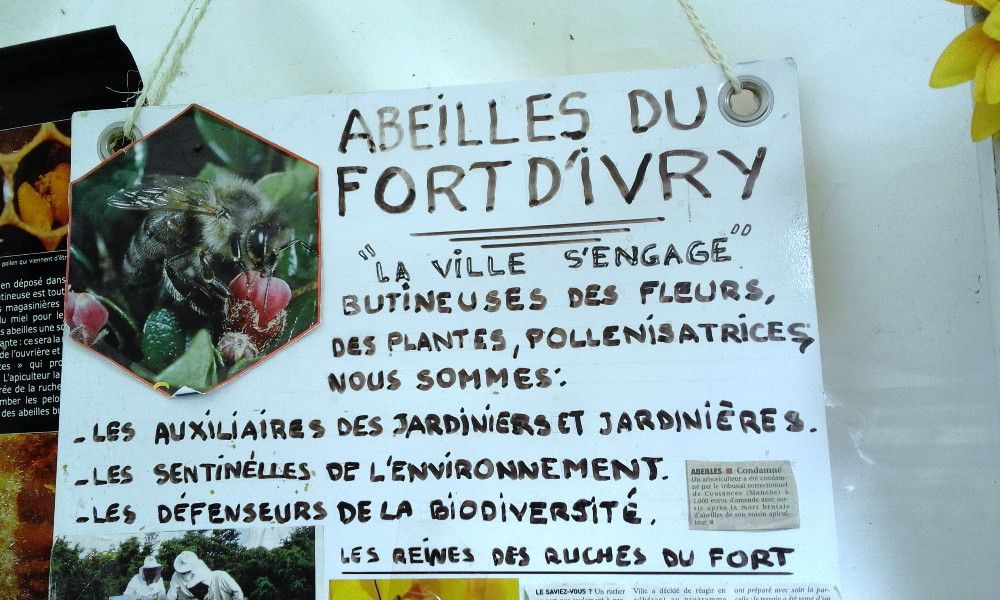 ABEILLES DU
FORT D'IVRY
"LA VILLE S'ENGAGE"
BUTINEUSES DES FLEURS,
DES PLANTES, POLLENISATRICES,
NOUS SOMMES:
-LES AUXILIAIRES DES JARDINIERS ET JARDINIÈRES.
-LES SENTINÉLLES DE L'ENVIRONNEMENT.
-LES DÉFENSEURS DE LA BIODIVERSITÉ.
LES REINES DES RUCHES DU FORT
ABEILLES ■ Condamné
Un arboriculteur a été condam-
né par le tribunal correctionnel
de Coutances (Manche) à
1.000 euros d'amende avec sur-
sis après la mort brutale
d'abeilles de son voisin apicul-
teur.
pollen qui viennent d'êtr
en déposé dans
tineuse est tout
s magasinières
du miel pour le
s abeilles une so
ante : ce sera la
de l'ouvrière et
ces » qui pro
L'apiculteur la
rée de la ruche
mber les pelo
des abeilles bu
LE SAVIEZ-VOUS ? Un rucher
Ville a décidé de réagir en
adhérant au programme
ont préparé avec soin la par-
celle : le terrain a été semé d'un